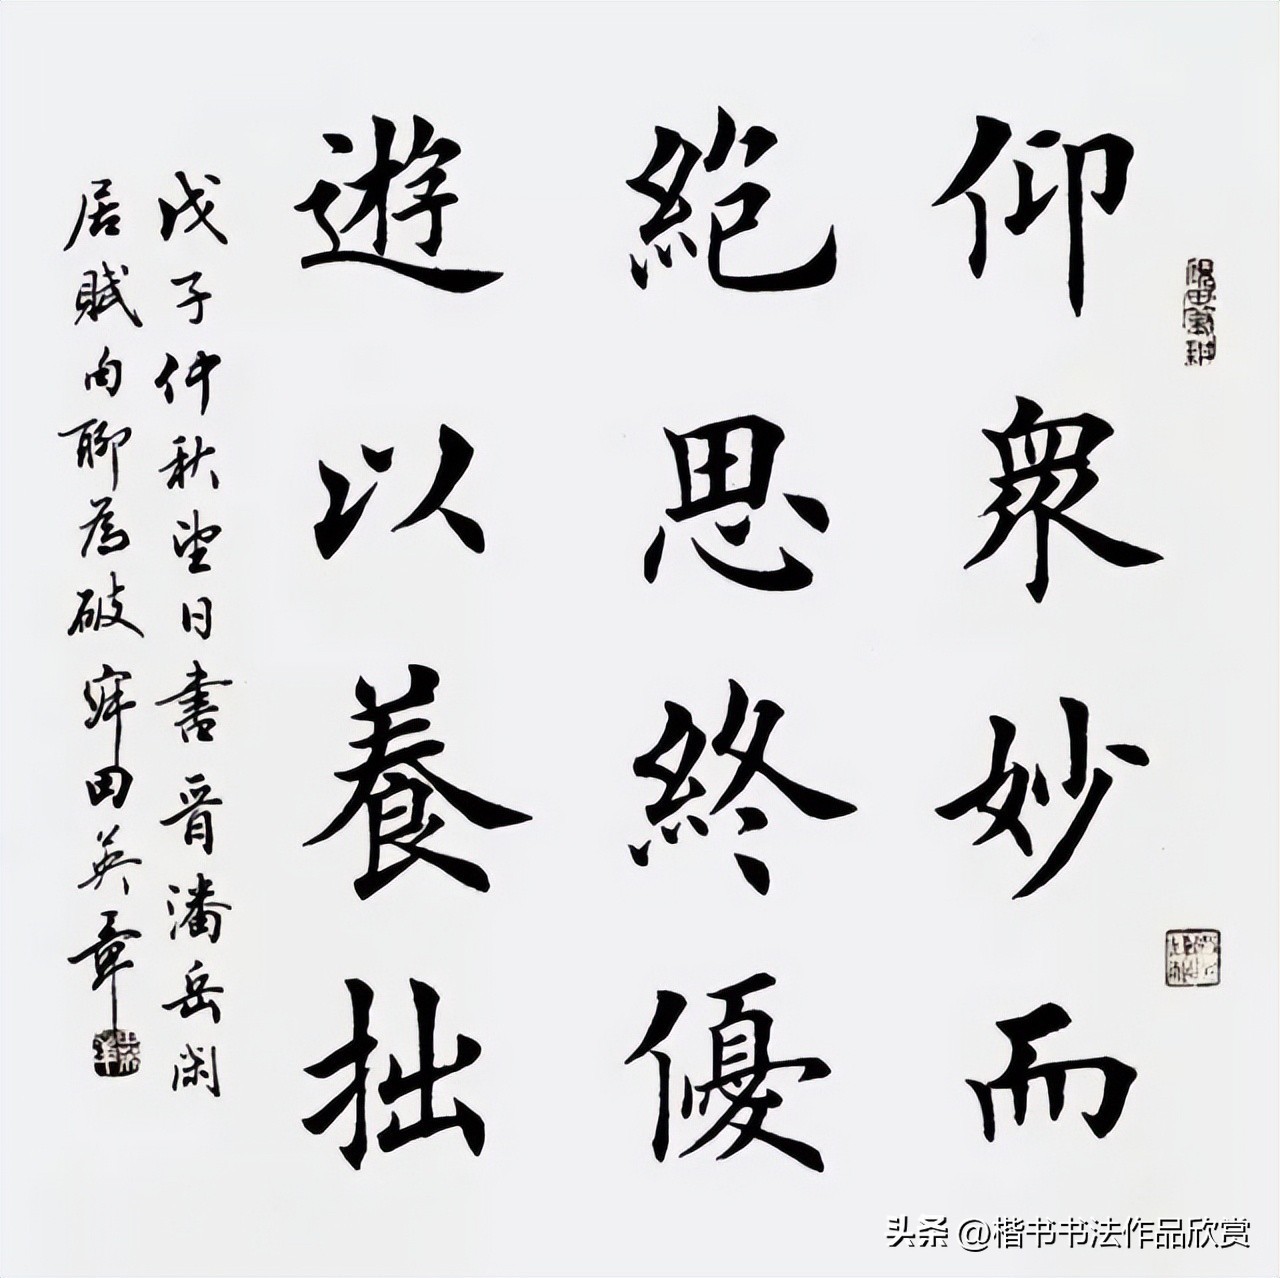 仰衆妙而
絶思終優
遊以養拙
戊子仲秋望日書晋潘岳闲
居賦句聊為破寂田英章
头条 @楷书书法作品欣赏